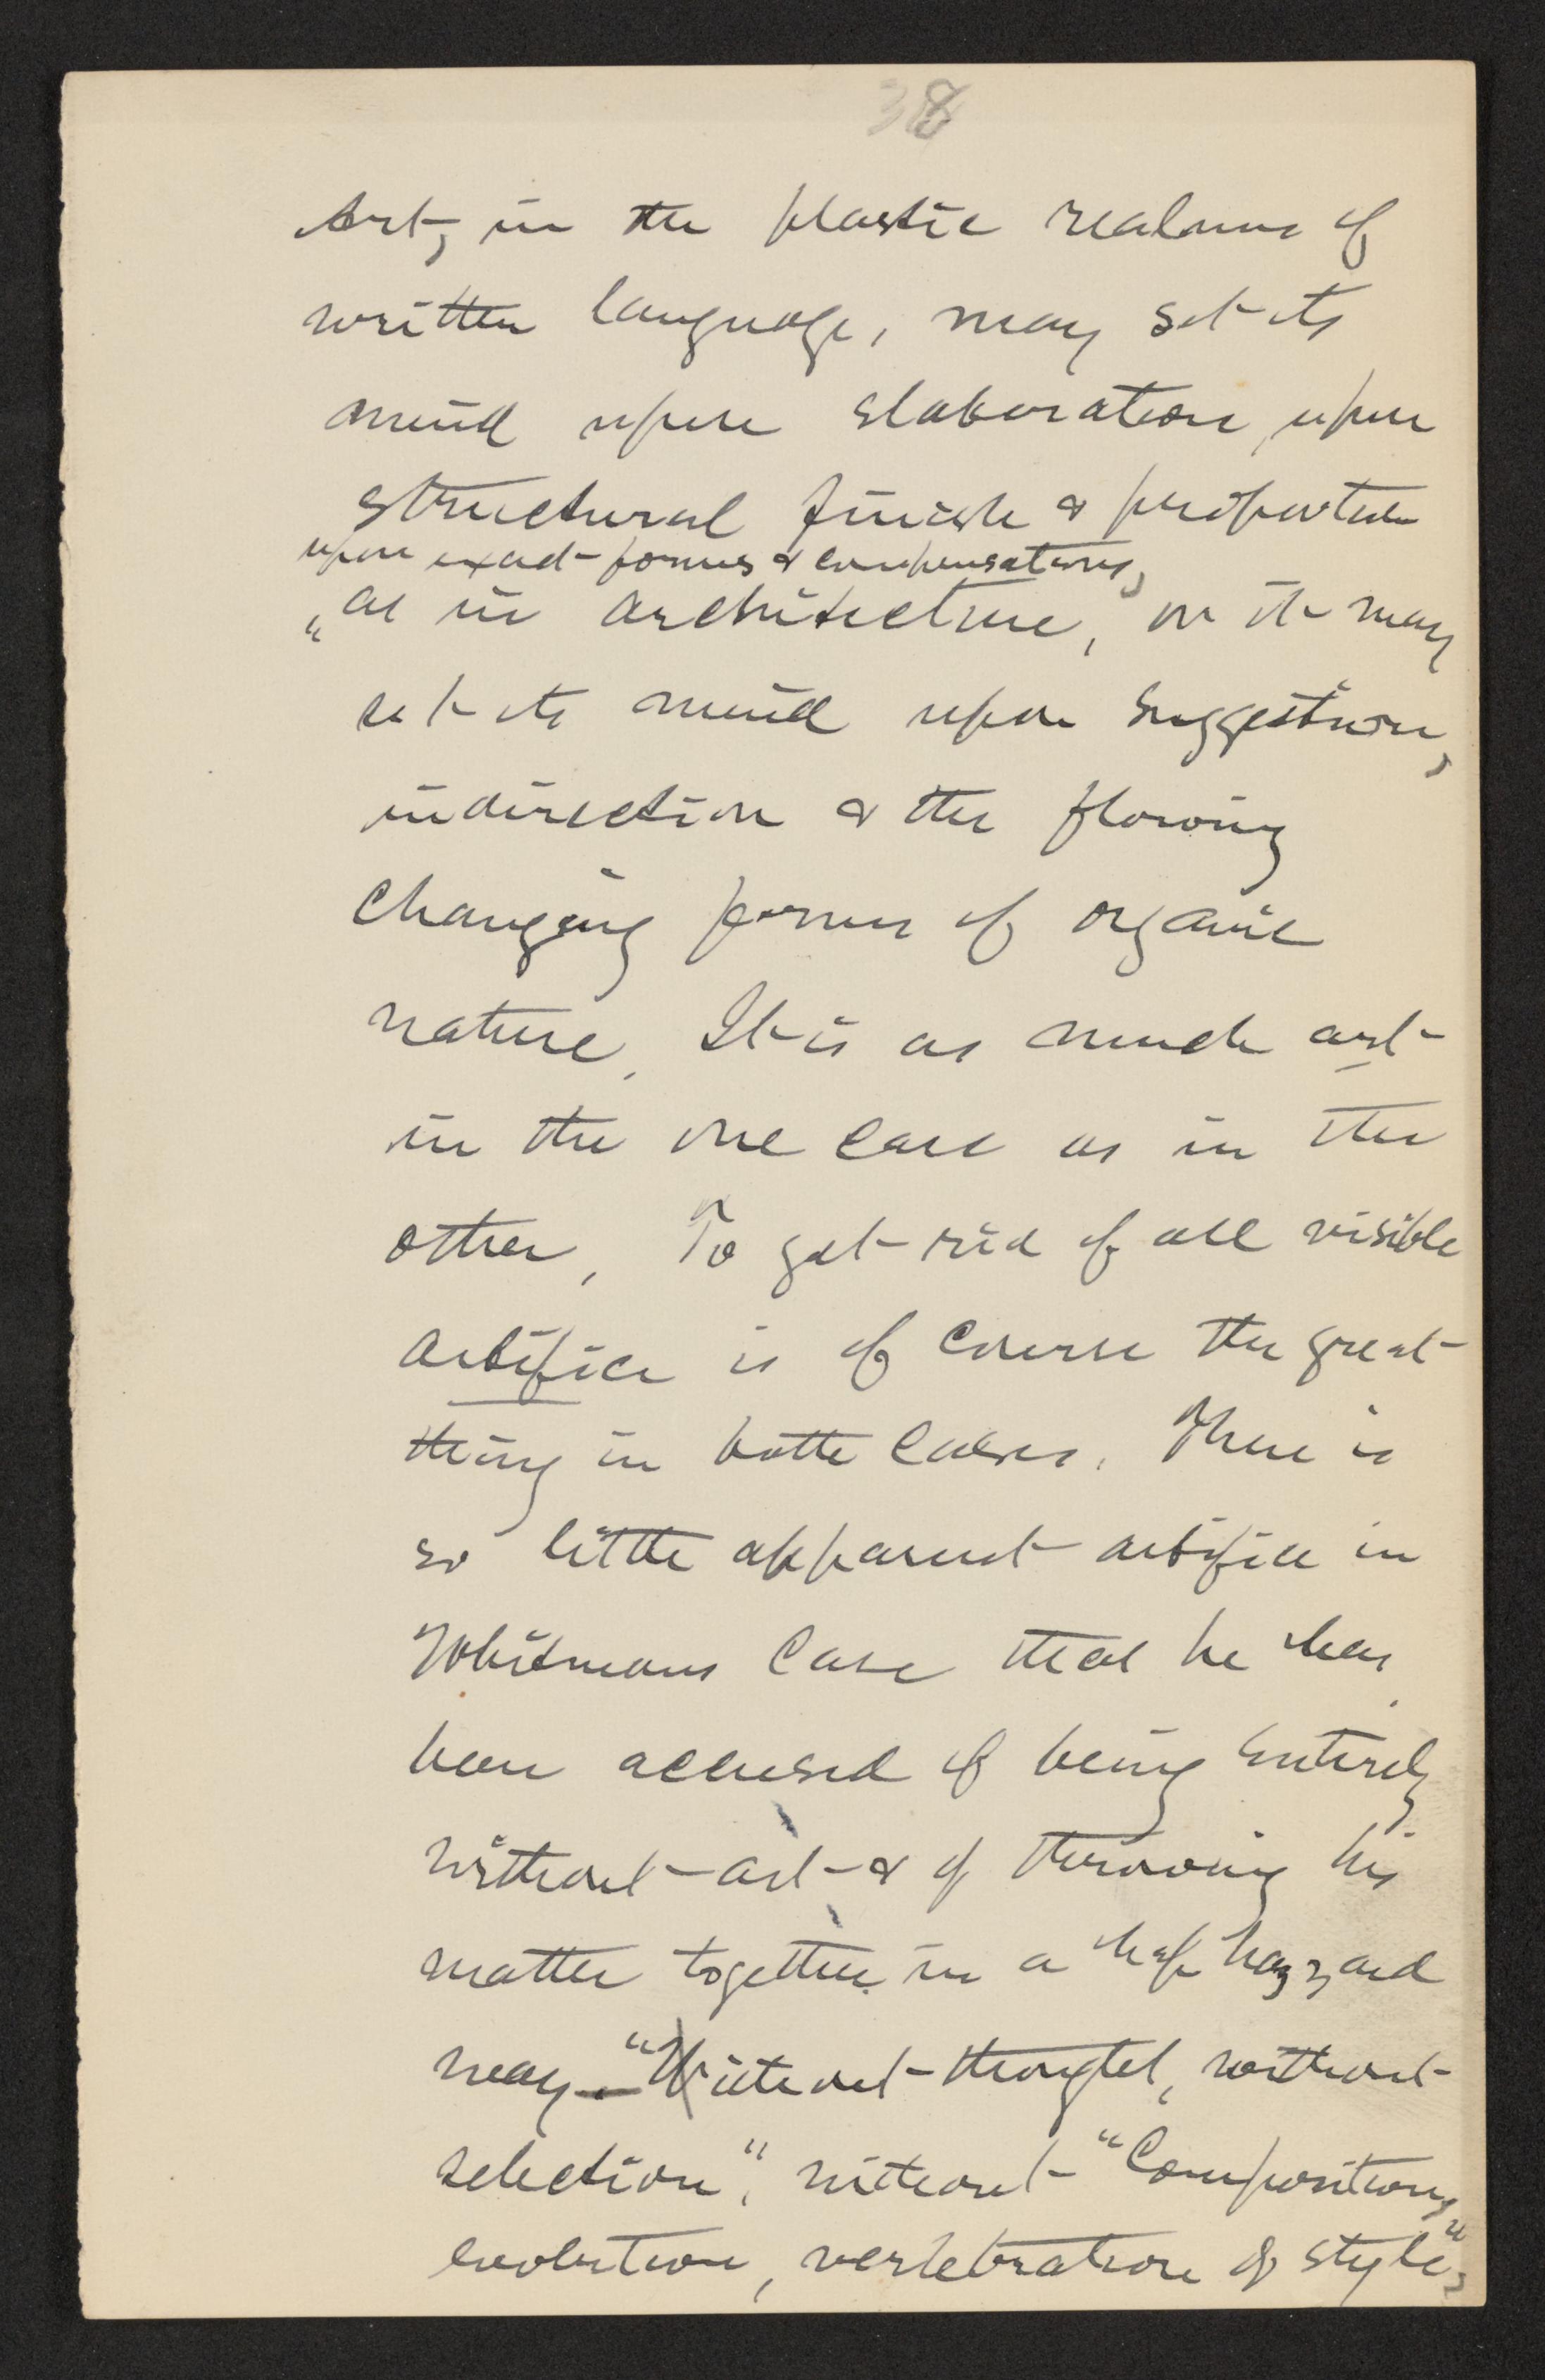 38
Art, in the plastic realms of
written language, may set its
mind upon elaboration, upon
structural finish & proportion
upon exact forms & compensations,
as in architecture, or it may
set its mind upon suggestion,
indirection & the flowing
changing forms of organic
nature. It is as much art
in the one case as in the
other. To get rid of all visible
artifice is of course the great
thing in both cases. There is
so little apparent artifice in
Whitmans case that he has
been accused of being entirely
without art & of throwing his
matter together in a hap hazzard
way — "Without thought, without
selection", without "Composition,
evolution, vertebration of style",